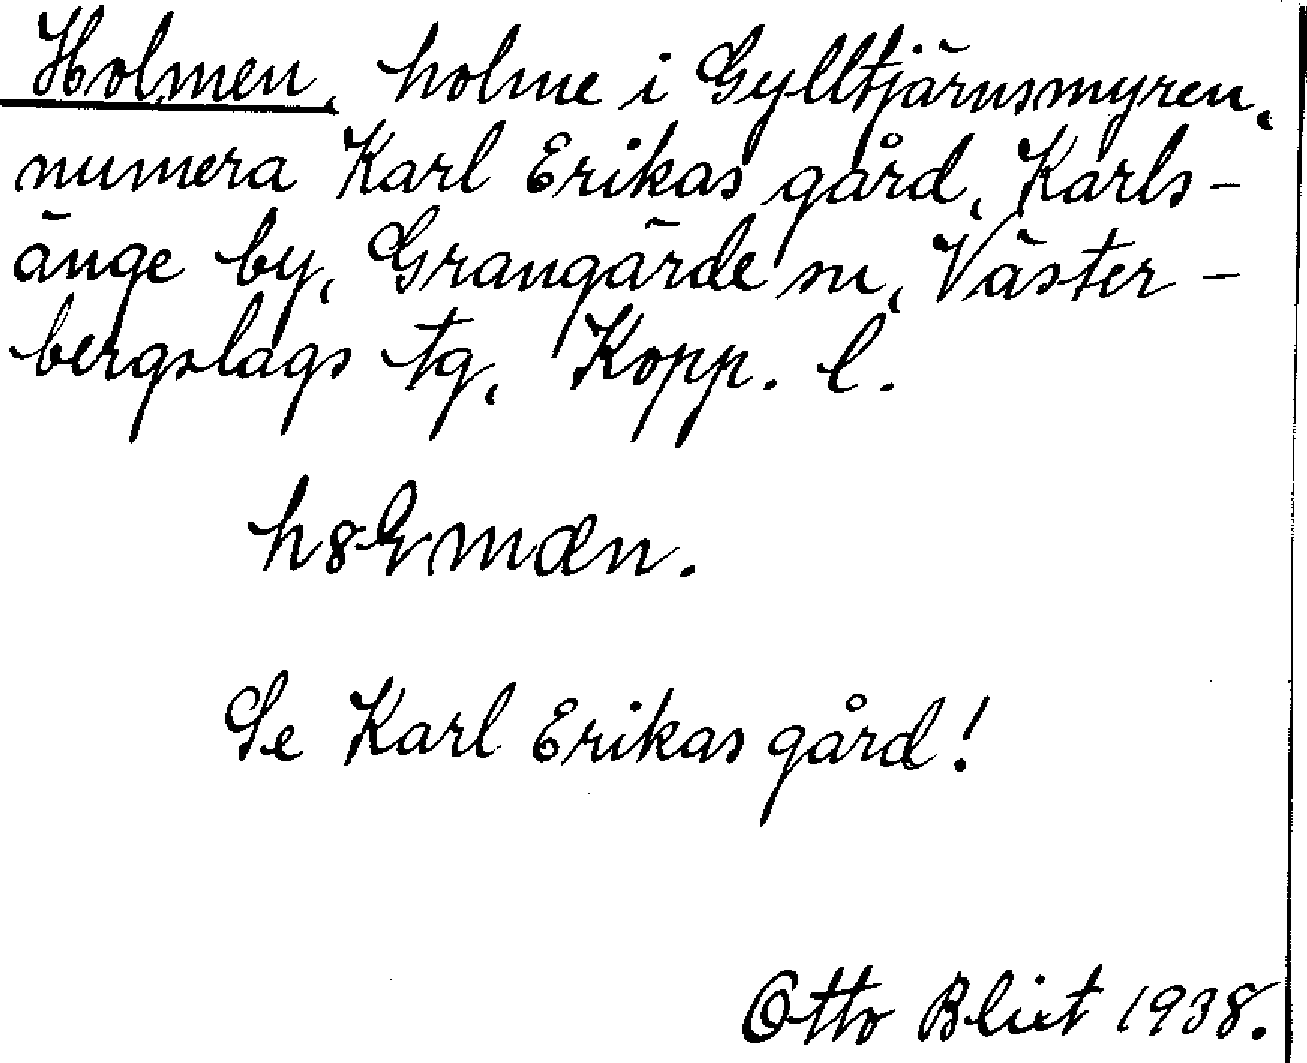 Holmen, holme i Gylltjärnsmyren,
numera Karl Erikas gård, Karls-
änge by, Grangärde sn, Väster-
bergslags tg, Kopp. l.
Se Karl Erikas gård!
Otto Blixt 1938.